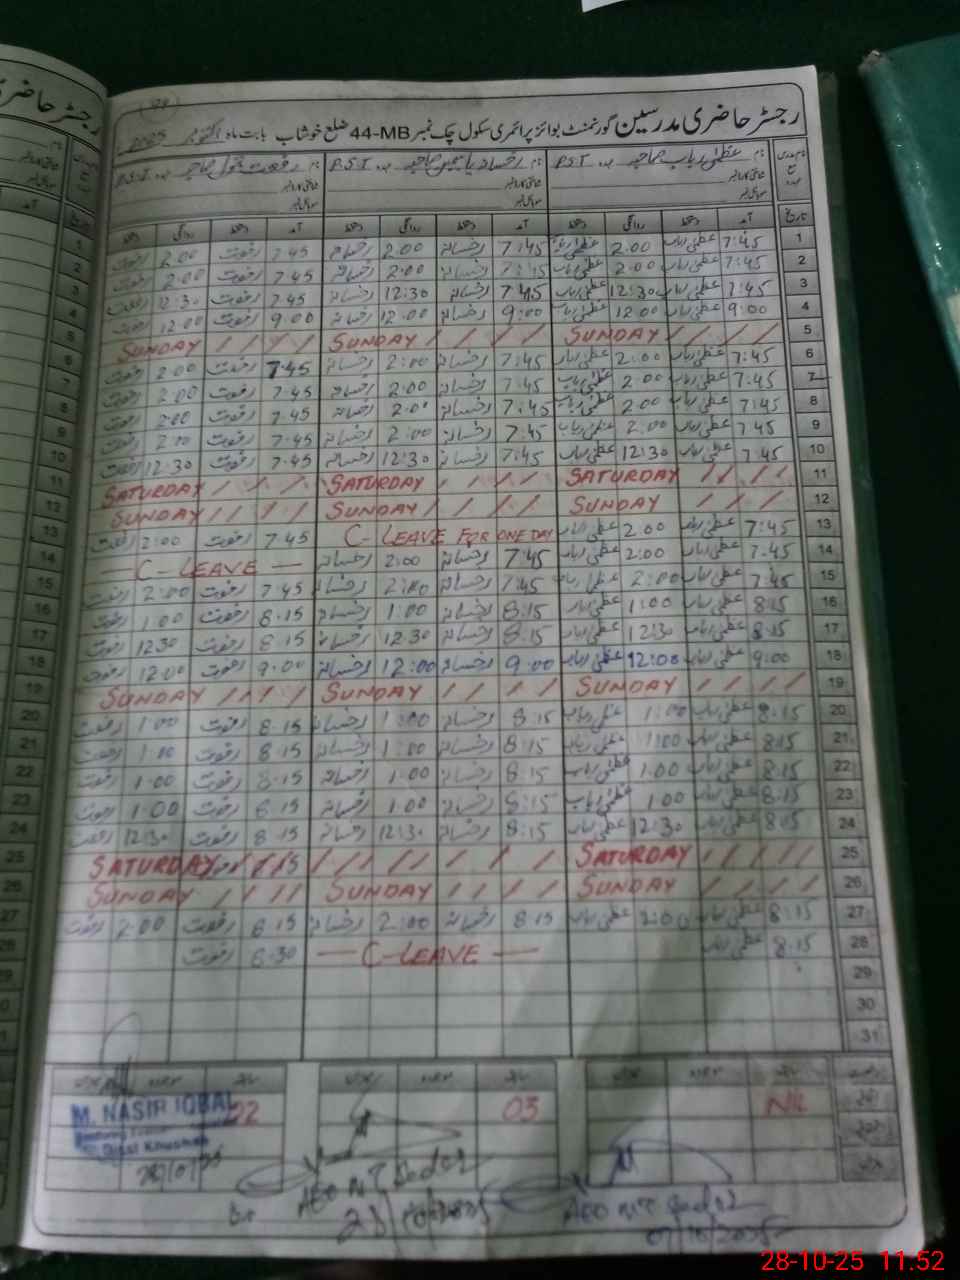 رجسٹر حاضری مدرسین گورنمنٹ بوائز پرائمری سکول چک نمبر 44-MB ضلع خوشاب بابت ماہ اکتوبر 2025
نام عظمیٰ رباب صاحبہ عہدہ P.S.T نام رخسانہ یاسمین صاحبہ عہدہ P.S.T نام رفعت بتول صاحبہ عہدہ P.S.T
شناختی کارڈ نمبر شناختی کارڈ نمبر شناختی کارڈ نمبر
موبائل نمبر موبائل نمبر موبائل نمبر
تاریخ آمد دستخط روانگی دستخط آمد دستخط روانگی دستخط آمد دستخط روانگی دستخط
1 7:45 عظمیٰ رباب 2:00 عظمیٰ رباب 7:45 رخسانہ 2:00 رخسانہ 7.45 رفعت 2.00 رفعت
2 7:45 عظمیٰ رباب 2:00 عظمیٰ رباب 7:45 رخسانہ 2:00 رخسانہ 7.45 رفعت 2.00 رفعت
3 7:45 عظمیٰ رباب 12:30 عظمیٰ رباب 7:45 رخسانہ 12:30 رخسانہ 7.45 رفعت 12:30 رفعت
4 9:00 عظمیٰ رباب 12.00 عظمیٰ رباب 9:00 رخسانہ 12.00 رخسانہ 9.00 رفعت 12.00 رفعت
5 SUNDAY SUNDAY SUNDAY
6 7:45 عظمیٰ رباب 2:00 عظمیٰ رباب 7:45 رخسانہ 2:00 رخسانہ 7.45 رفعت 2.00 رفعت
7 7:45 عظمیٰ رباب 2.00 عظمیٰ رباب 7:45 رخسانہ 2:00 رخسانہ 7.45 رفعت 2.00 رفعت
8 7:45 عظمیٰ رباب 2.00 عظمیٰ رباب 7:45 رخسانہ 2.00 رخسانہ 7.45 رفعت 2.00 رفعت
9 7.45 عظمیٰ رباب 2.00 عظمیٰ رباب 7:45 رخسانہ 2:00 رخسانہ 7.45 رفعت 2.00 رفعت
10 7.45 عظمیٰ رباب 12:30 عظمیٰ رباب 7:45 رخسانہ 12:30 رخسانہ 7.45 رفعت 12.30 رفعت
11 SATURDAY SATURDAY SATURDAY
12 SUNDAY SUNDAY SUNDAY
13 7:45 عظمیٰ رباب 2.00 عظمیٰ رباب C-LEAVE FOR ONE DAY 7.45 رفعت 2:00 رفعت
14 7.45 عظمیٰ رباب 2:00 عظمیٰ رباب 7:45 رخسانہ 2:00 رخسانہ — C-LEAVE —
15 7:45 عظمیٰ رباب 2:00 عظمیٰ رباب 7:45 رخسانہ 2:00 رخسانہ 7.45 رفعت 2:00 رفعت
16 8:15 عظمیٰ رباب 1:00 عظمیٰ رباب 8:15 رخسانہ 1:00 رخسانہ 8.15 رفعت 1.00 رفعت
17 8:15 عظمیٰ رباب 12:30 عظمیٰ رباب 8:15 رخسانہ 12.30 رخسانہ 8.15 رفعت 12.30 رفعت
18 9:00 عظمیٰ رباب 12:00 عظمیٰ رباب 9:00 رخسانہ 12:00 رخسانہ 9.00 رفعت 12.00 رفعت
19 SUNDAY SUNDAY SUNDAY
20 8:15 عظمیٰ رباب 1:00 عظمیٰ رباب 8:15 رخسانہ 1:00 رخسانہ 8.15 رفعت 1.00 رفعت
21 8:15 عظمیٰ رباب 1:00 عظمیٰ رباب 8:15 رخسانہ 1:00 رخسانہ 8.15 رفعت 1.00 رفعت
22 8:15 عظمیٰ رباب 1.00 عظمیٰ رباب 8:15 رخسانہ 1.00 رخسانہ 8.15 رفعت 1.00 رفعت
23 8:15 عظمیٰ رباب 1.00 عظمیٰ رباب 8:15 رخسانہ 1.00 رخسانہ 8.15 رفعت 1.00 رفعت
24 8:15 عظمیٰ رباب 12:30 عظمیٰ رباب 8:15 رخسانہ 12:30 رخسانہ 8.15 رفعت 12:30 رفعت
25 SATURDAY SATURDAY
26 SUNDAY SUNDAY SUNDAY
27 8:15 عظمیٰ رباب 2:00 عظمیٰ رباب 8:15 رخسانہ 2:00 رخسانہ 8.15 رفعت 2.00 رفعت
28 8:15 عظمیٰ رباب — C-LEAVE — 8.30 رفعت
29
30
31
NIL 03 02
M. NASIR IQBAL
AEO
AEO
07/10/2025
28-10-25 11.52